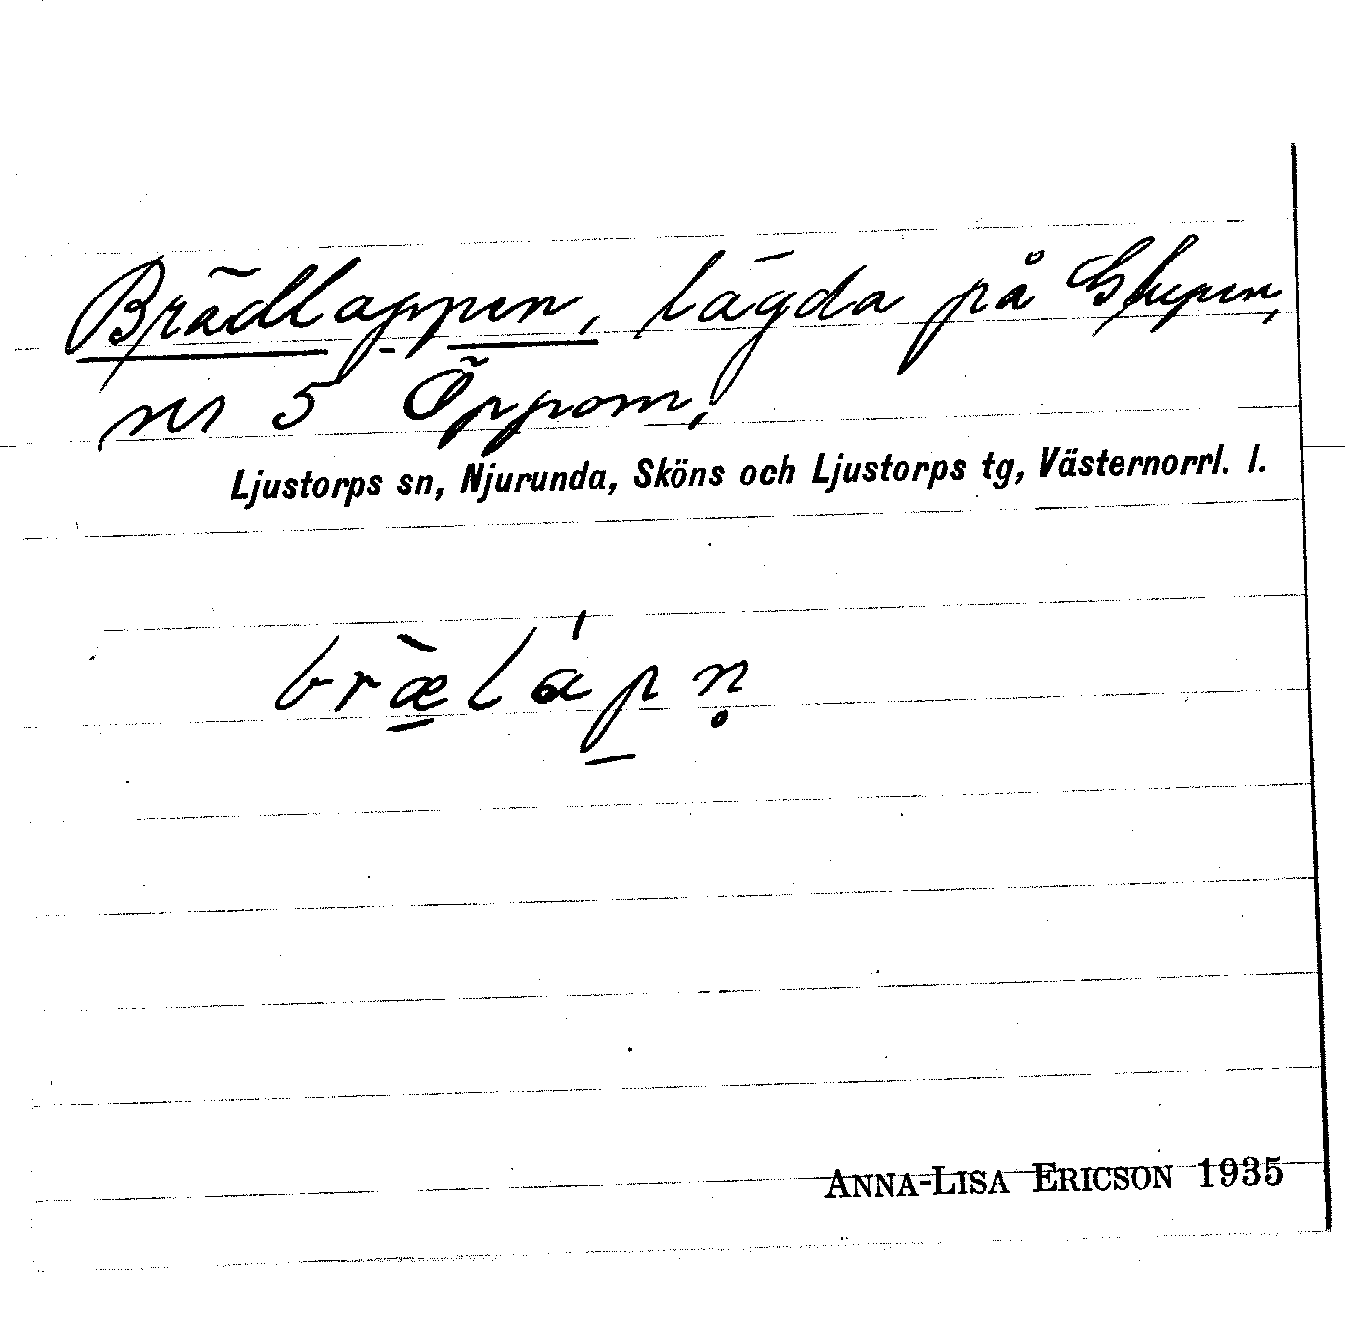 Brädlappen, lägda på
nr 5 Öppom,
Ljustorps sn, Njurunda, Sköns och Ljustorps tg, Västernorrl. l.
bræ̲̀láp̲n̥
ANNA-LISA ERICSON 1935